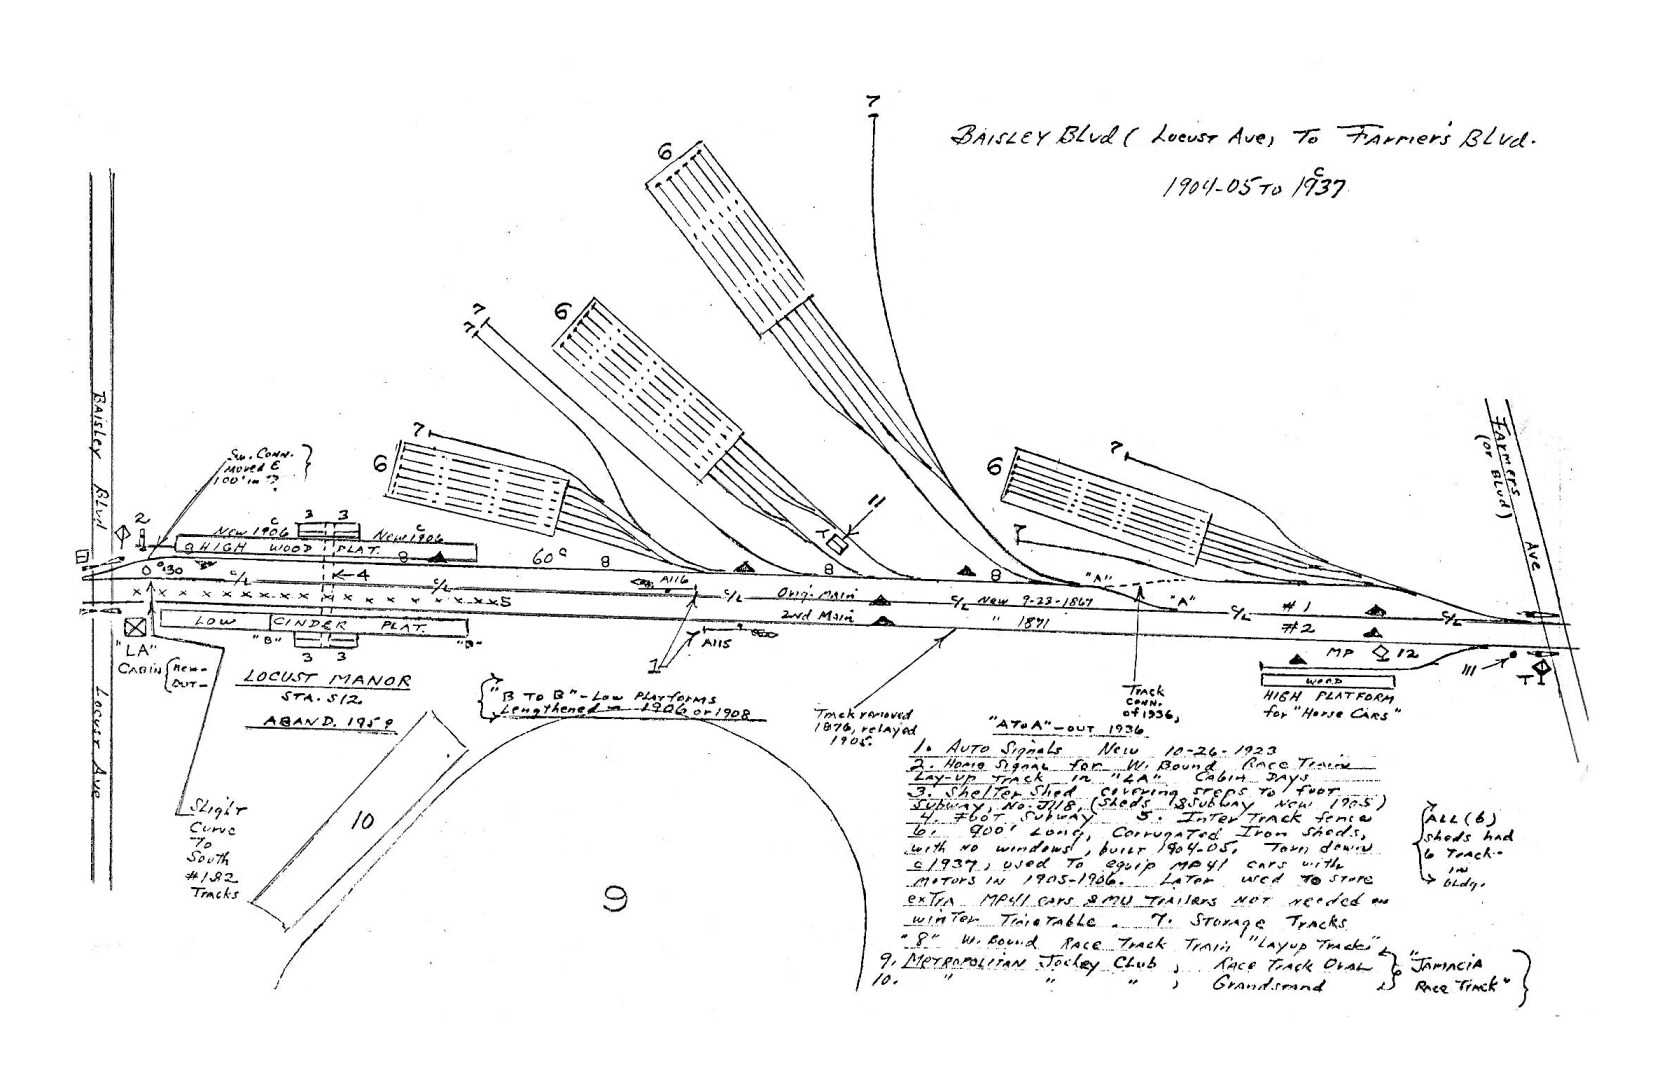 BAISLEY BLVD ( LOCUST AVE, TO FARMER'S BLVD.
1904-05 TO 1937
C
7
6
7
7
6
7
6
11
Y
6
7
7
BAISLEY BLVD
LOCUST AVE
FARMERS
(OR BLVD)
AVE
SW. CONN.
MOVED E
100' IN ?
2
C
NEW 1906
3 3
C
NEW 1906
8 HIGH WOOD PLAT. 8
60 C
8
8
8
4
C/L
C/L
A116
C/L
ORIG. MAIN
C/L NEW 9-23-1867
"A"
"A"
C/L
#1
C/L
5
LOW CINDER PLAT.
"B"
"B"
3 3
2ND MAIN " 1871
A115
1
#2
MP
12
III
T
WOOD
HIGH PLATFORM
for "HORSE CARS"
"LA"
CABIN
NEW-
OUT-
LOCUST MANOR
STA. S12
ABAND. 1959
"B TO B" - LOW PLATFORMS
LENGTHENED - 1906 OR 1908
TRACK REMOVED
1876, RELAYED
1905.
TRACK
CONN.
OF 1936,
"A TO A" - OUT 1936
SLIGHT
CURVE
TO
SOUTH
#1&2
TRACKS
10
9
1. AUTO SIGNALS NEW 10-26-1923
2. HOME SIGNAL FOR W. BOUND RACE TRAIN
LAY-UP TRACK IN "LA" CABIN DAYS
3. SHELTER SHED COVERING STEPS TO FOOT
SUBWAY, NO. J118, (SHEDS & SUBWAY NEW 1905)
4. FOOT SUBWAY 5. INTER TRACK FENCE
6. 900' LONG, CORRUGATED IRON SHEDS,
WITH NO WINDOWS, BUILT 1904-05. TORN DOWN
C1937, USED TO EQUIP MP41 CARS WITH
MOTORS IN 1905-1906. LATER USED TO STORE
EXTRA MP41 CARS & MU TRAILERS NOT NEEDED ON
WINTER TIMETABLE. 7. STORAGE TRACKS
"8" W. BOUND RACE TRACK TRAIN "LAYUP TRACK"
9. METROPOLITAN JOCKEY CLUB, RACE TRACK OVAL
10. " " " , GRANDSTAND
"JAMACIA
RACE TRACK"
ALL (6)
SHEDS HAD
6 TRACK-
IN
BLDG.